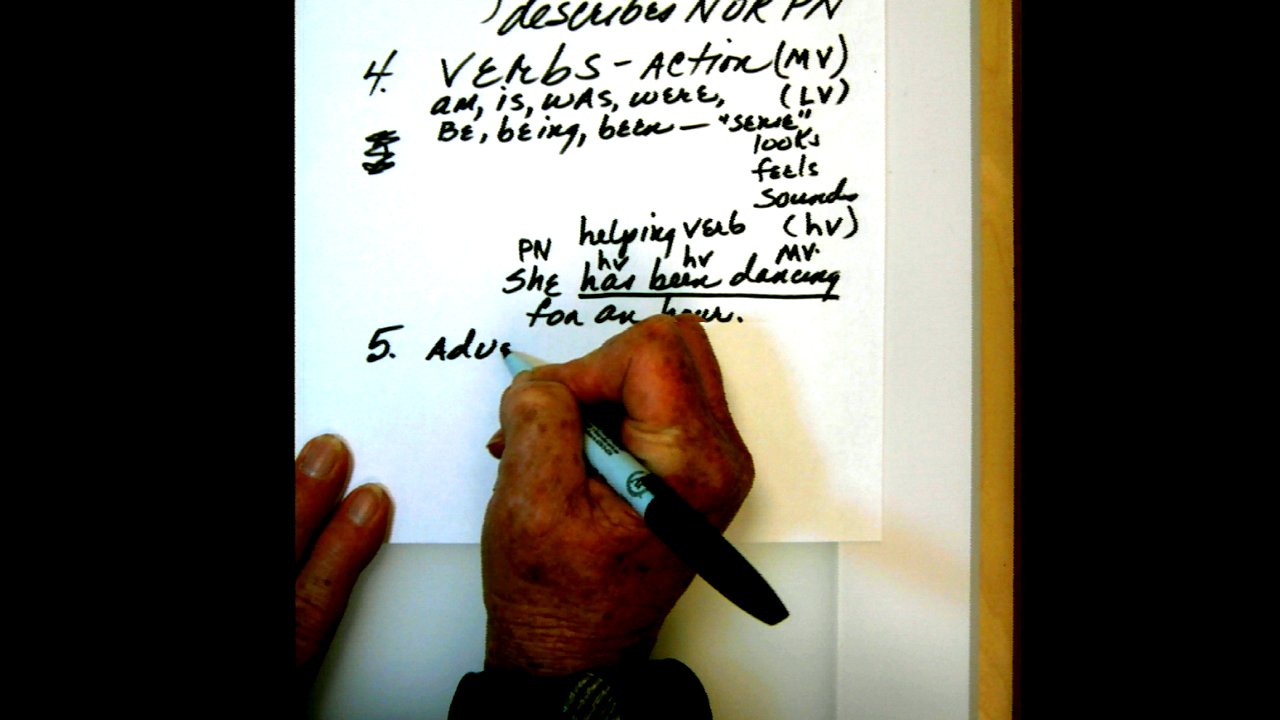 describes N OR PN
4. VERbS - Action (MV)
am, is, was, were, (LV)
BE, being, been - "sense"
looks
feels
sounds
helping verb (hv)
PN hv hv MV.
She has been dancing
for an hour.
5. Adve